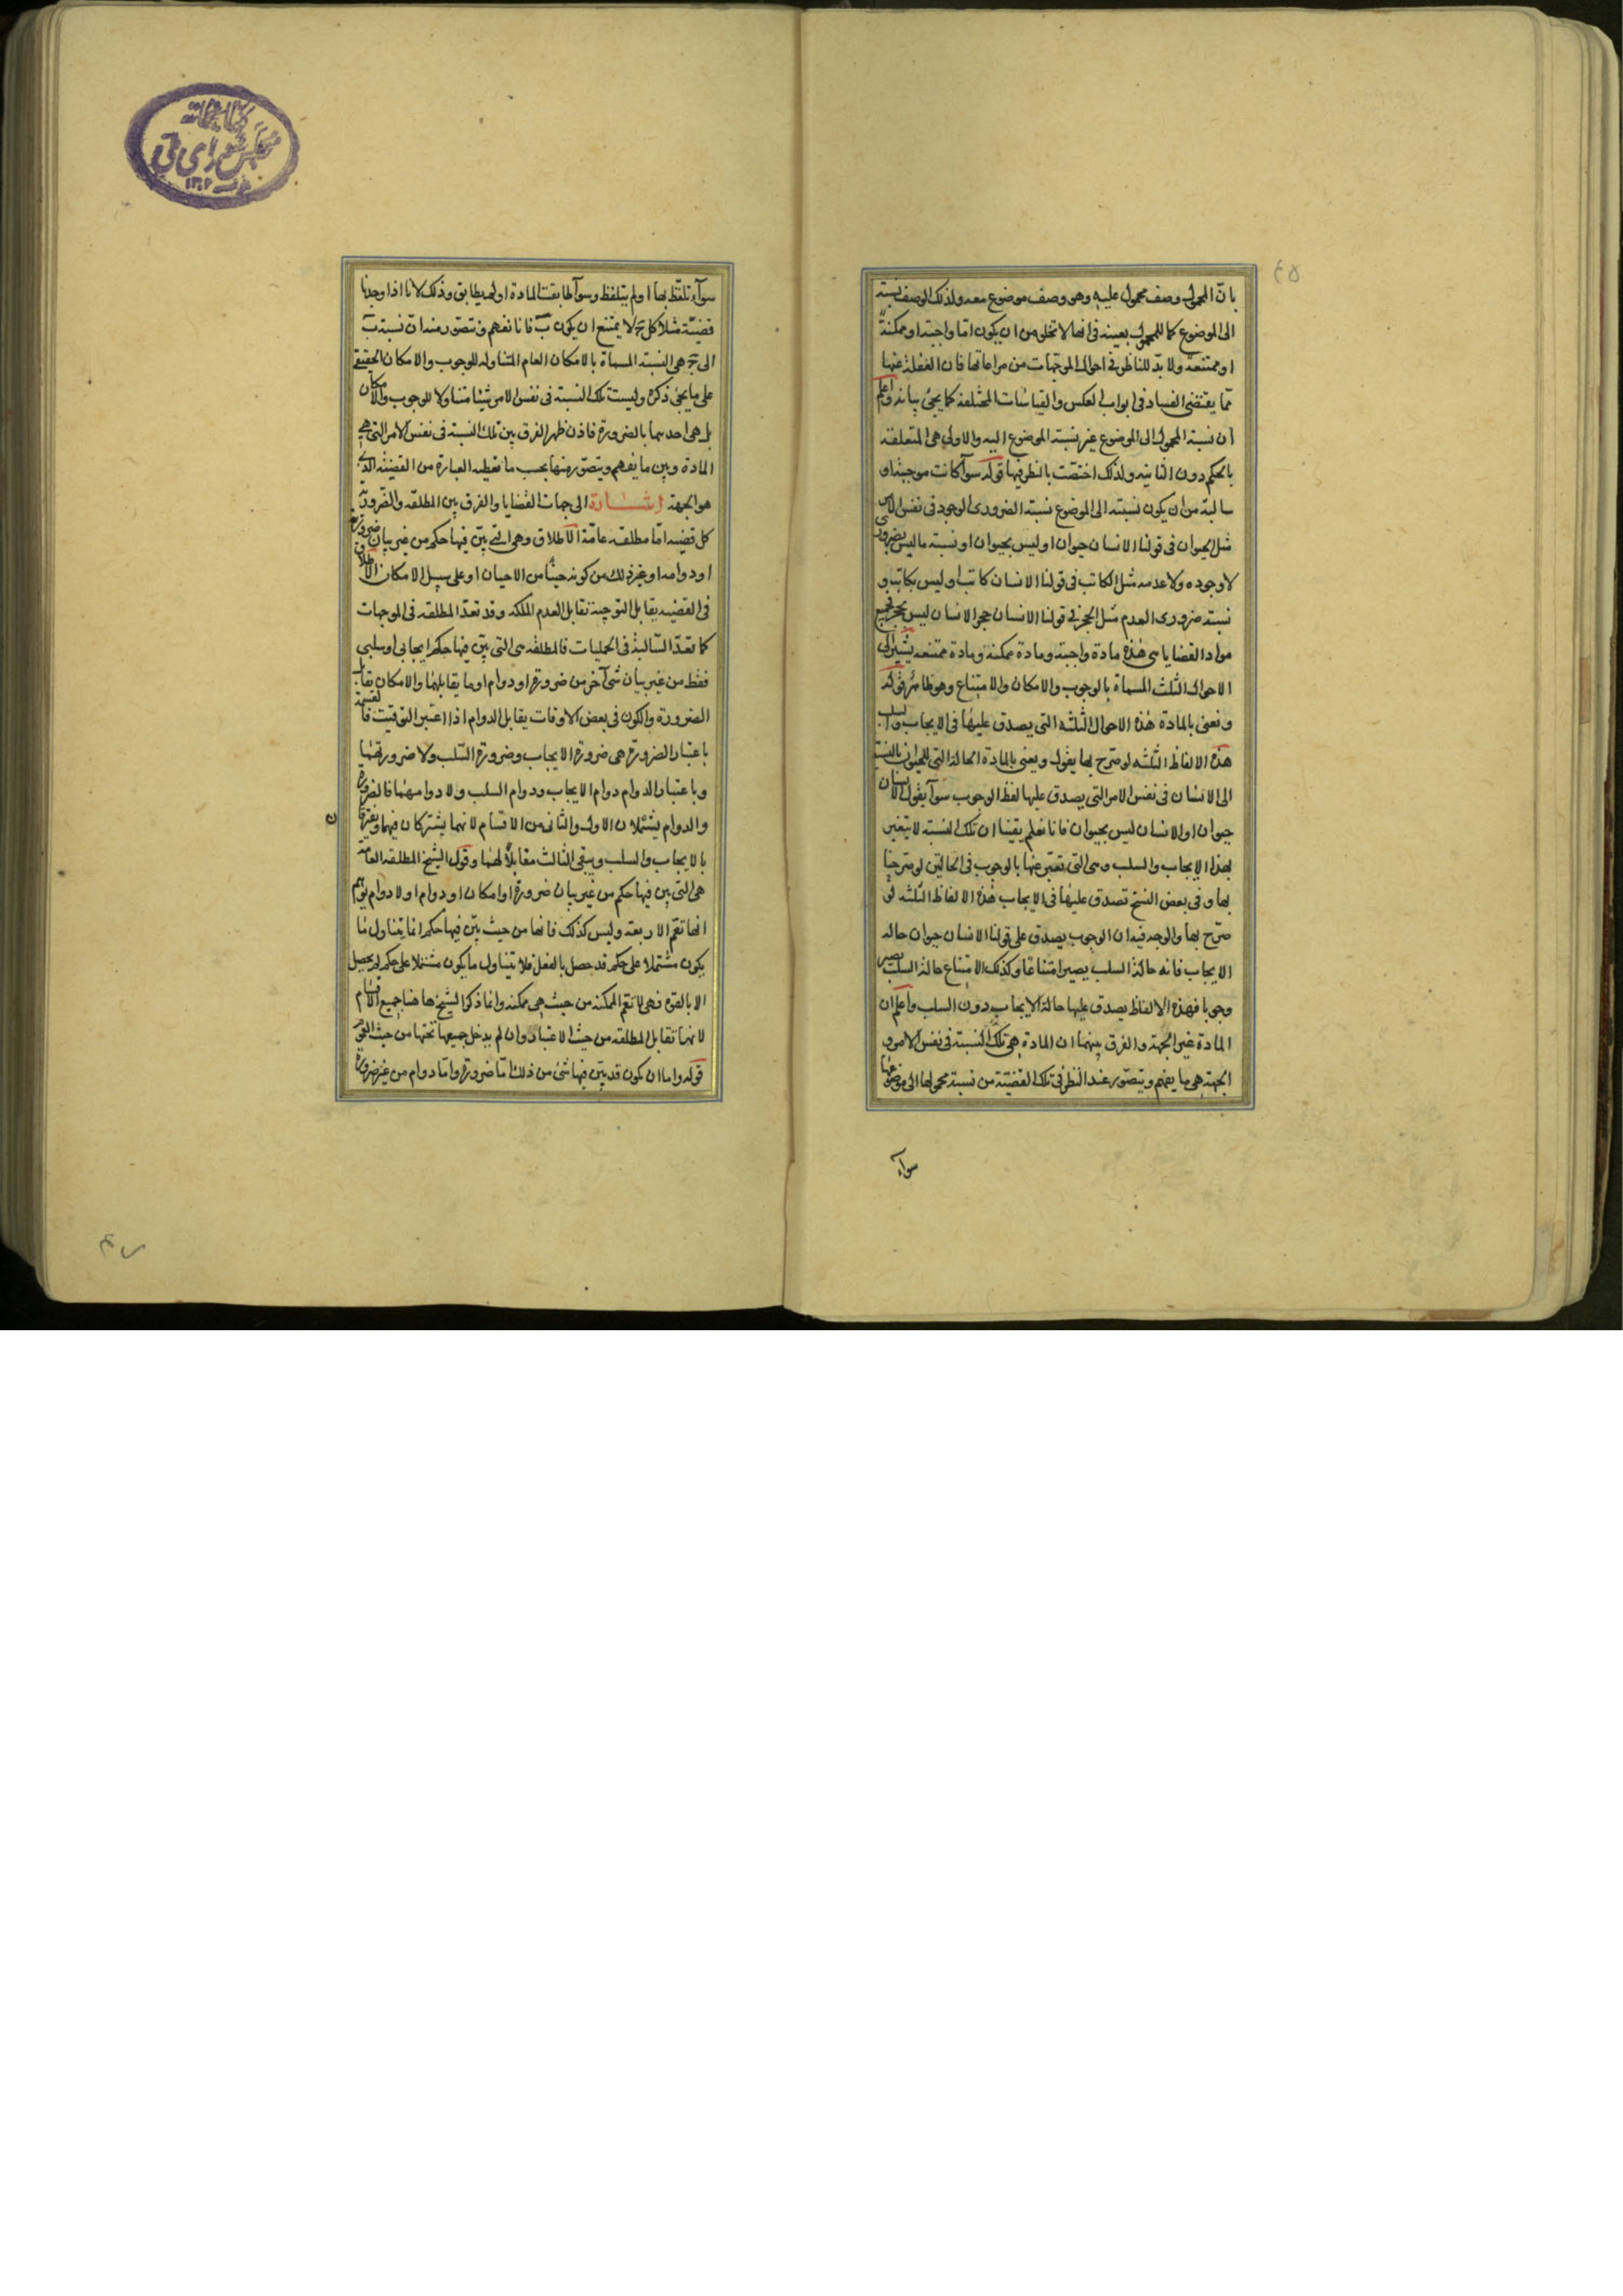 بانّ المحمول وصف محمول عليه وهو وصف موضوع معه ولذلك الوصف نسبة
الى الموضوع كما للمحمول بعينه فى انها لا تخلو من ان يكون اما واجبة او ممكنة
او ممتنعة ولا بدّ للناظر فى احوال الموجّهات من مراعاتها فان الغفلة عنها
ممّا يقتضى الفساد فى ابواب العكس والقياسات المختلفة كما يجئ بيانه واعلم
ان نسبة المحمول الى الموضوع غير نسبة الموضوع اليه والاولى هى المتعلقة
بالحكم دون الثانية ولذلك اختصّت بالنظر فيها قوله سوآ كانت موجبة او
سالبة من ان يكون نسبته الى الموضوع نسبة الضرورى الوجود فى نفس الامر
مثل الحيوان فى قولنا الانسان حيوان او ليس بحيوان او نسبة ما ليس بضرورى
لا وجوده ولا عدمه مثل الكاتب فى قولنا الانسان كاتب او ليس بكاتب و
نسبة ضرورى العدم مثل الحجر فى قولنا الانسان حجر الانسان ليس بحجر فجميع
مواد القضايا هى هذه مادة واجبة ومادة ممكنة ومادة ممتنعة يشير الى
الاحوال الثلث المسماة بالوجوب والامكان والامتناع وهو ظاهر قوله
ونعنى بالمادة هذه الاحوال الثلثه التى يصدق عليها فى الايجاب والسلب
هذه الالفاظ الثلثه لو صرّح بها يقول ويعنى بالمادة الحالة التى للحيوان بالنسبة
الى الانسان فى نفس الامر التى يصدق عليها لفظ الوجوب سوآ يقول الانسان
حيوان او الانسان ليس بحيوان فانا نعلم يقينا ان تلك النسبة لا يتغير
بهذا الايجاب والسلب وهى التى تعبّر عنها بالوجوب فى الحالتين لو صرحنا
بها وفى بعض النسخ تصدق عليها فى الايجاب هذه الالفاظ الثلثه لو
صرّح بها والوجه فيه ان الوجوب يصدق على قولنا الانسان حيوان حالة
الايجاب فانه حالة السلب يصير امتناعا وكذلك الامتناع حالة السلب يصير
وجوبا فهذه الالفاظ يصدق عليها حالة الايجاب دون السلب واعلم ان
المادة غير الجهة والفرق بينهما ان المادة هى تلك النسبة فى نفس الامر و
الجهة هى ما يفهم ويتصوّر عند النظر فى تلك القضيّة من نسبة محمولها الى موضوعها
سوآء
سوآء تلفّظ بها او لم يتلفظ وسوآ طابقت المادة او لم يطابق وذلك لانا اذا وجدنا
قضيّة مثلا كل ج لا يمتنع ان يكون ب فانا نفهم ونتصوّر منه ان نسبة ب
الى ج هى النسبة المسماة بالامكان العام المتناوله للوجوب والامكان الحقيقى
على ما يجئ ذكره وليست تلك النسبة فى نفس الامر شيئا متناولا للوجوب والامكان
بل هى احديهما بالضرورة فاذن ظهر الفرق بين تلك النسبة فى نفس الامر التى هى
المادة وبين ما يفهم ويتصوّر منها بحسب ما تعطيه العبارة من القضيّة الذى
هو الجهة اشارة الى جهات القضايا والفرق بين المطلقه والضروريّة
كل قضية امّا مطلقه عامّة الاطلاق وهى التى بيّن فيها حكم من غير بيان ضرورته
او دوامه او غير ذلك من كونه حينا من الاحيان او على سبيل الامكان الاطلاق
فى القضيه يقابل التوجيه تقابل العدم الملكه وقد تعدّ المطلقه فى الموجهات
كما تعدّ السّالبة فى الحمليات فالمطلقه هى التى بيّن فيها حكم ايجابى او سلبى
فقط من غير بيان شئ آخر من ضرورة او دوام او ما يقابلهما والامكان يقابل
الضرورة والكون فى بعض الاوقات يقابل الدوام اذا اعتبر التوقيت فالقسمة
باعتبار الضرورة هى ضرورة الايجاب وضرورة السّلب ولا ضرورتهما
وباعتبار الدوام دوام الايجاب ودوام السلب ولا دوامهما فالضرورة
والدوام يشتملان الاول والثانى من الاقسام لانهما يشتركان فيهما ويفترقان
بالايجاب والسلب ويبقى الثالث مقابلاً لهما وقول الشيخ المطلقه العامة
هى التى بين فيها حكم من غير بيان ضرورة او امكان او دوام او لا دوام يوهم
انها تعمّ الاربعة وليس كذلك فانها من حيث بيّن فيها حكم انما يتناول ما
يكون مشتملا على حكم قد حصل بالفعل فلا يتناول ما يكون مشتملا على حكم لم يحصل
الا بالقوه فهى لا تعم الممكنه من حيث هى ممكنه وانما ذكر الشيخ هاهنا جميع الاقسام
لانها تقابل المطلقه من حيث الاعتبار وان لم يدخل جميعها تحتها من حيث العموم
قوله واما ان يكون قد بيّن فيها شئ من ذلك امّا ضرورة وامّا دوام من غير ضرورة
كتابخانه
مجلس شورای ملی